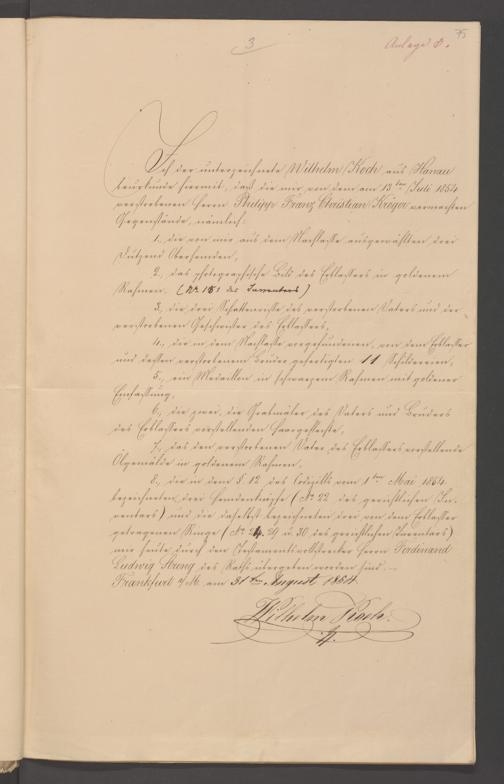 3
Anlage 8.
75
Ich der unterzeichnete Wilhelm Koch aus Hanau
beurkunde hiermit, daß die mir von dem am 13ten Juli 1854
verstorbenen Herrn Philipp Franz Christian Krüger vermachten
Gegenstände, nämlich:
1., die von mir aus dem Nachlasse ausgewählten drei
Dutzend Oberhemden,
2., das photographische Bild des Erblassers in goldenem
Rahmen. (No. 181 des Inventars)
3., die drei Schattenrisse des verstorbenen Vaters und der
verstorbenen Geschwister des Erblassers,
4., die in dem Nachlasse vorgefundenen, von dem Erblasser
und dessen verstorbenem Bruder gefertigten 11 Schildereien,
5., ein Medaillon in schwarzem Rahmen mit goldener
Einfassung,
6., die zwei, die Grabmäler des Vaters und Bruders
des Erblassers vorstellenden Haargeflechte,
7., das den verstorbenen Vater des Erblassers vorstellende
Ölgemälde in goldenem Rahmen,
8., die in dem § 12 des Codizills vom 1ten Mai 1854
bezeichneten drei Hemdenknöpfe (No 22 des gerichtlichen In-
ventars) und die daselbst bezeichneten drei von dem Erblasser
getragenen Ringe (No 24. 29 u. 30 des gerichtlichen Inventars)
mir heute durch den Testamentsvollstrecker Herrn Ferdinand
Ludwig des Raths übergeben worden sind. —
Frankfurt a/M. am 31ten August 1854.
Wilhelm Koch.